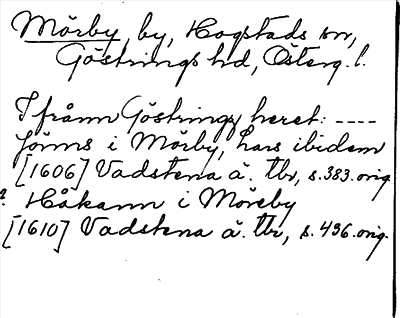 Mörby, by, Hogstads sn,
Göstrings hd, Österg. l.
Ifrånn Göstrings heret: ----
Jönns i Mörby, Lars ibidem
[1606] Vadstena ä. tbr, s. 383. orig.
Håkann i Möreby
[1610] Vadstena ä. tbr, s. 436. orig.